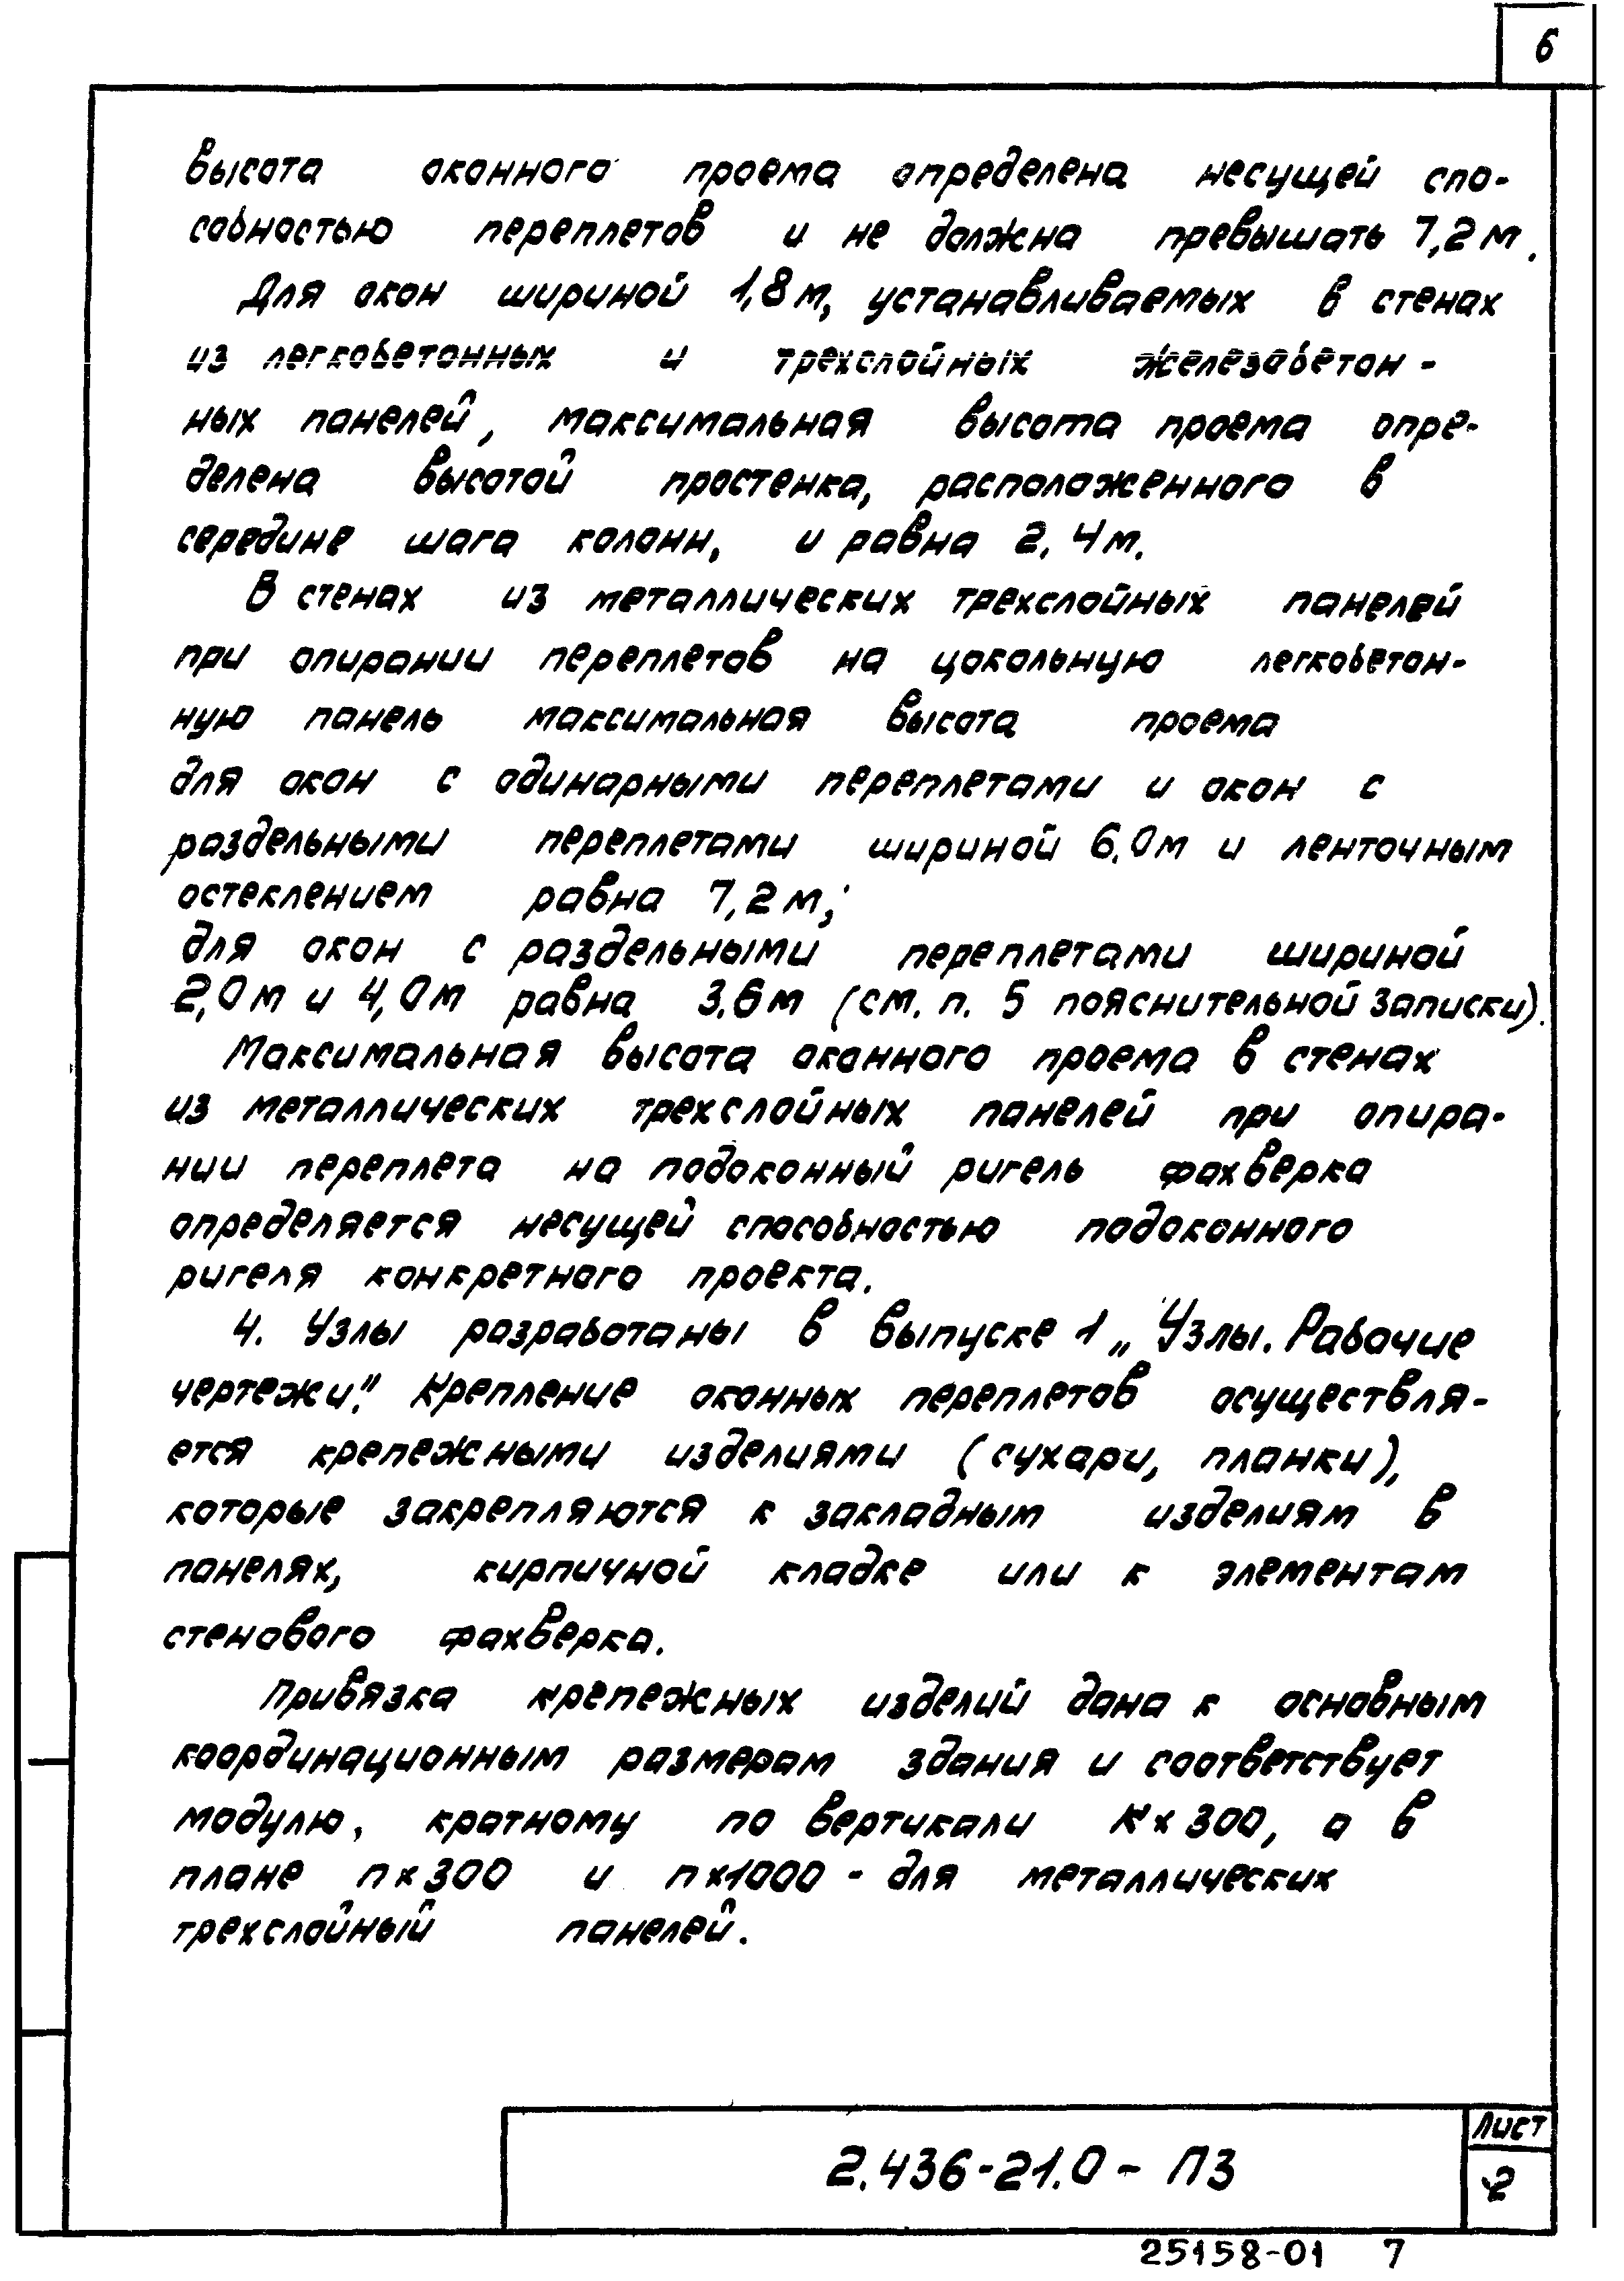 6
высота оконного проема определена несущей спо-
собностью переплетов и не должна превышать 7,2 м.
Для окон шириной 1,8 м, устанавливаемых в стенах
из легкобетонных и трехслойных железобетон-
ных панелей, максимальная высота проема опре-
делена высотой простенка, расположенного в
середине шага колонн, и равна 2,4 м.
В стенах из металлических трехслойных панелей
при опирании переплетов на цокольную легкобетон-
ную панель максимальная высота проема
для окон с одинарными переплетами и окон с
раздельными переплетами шириной 6,0 м и ленточным
остеклением равна 7,2 м;
для окон с раздельными переплетами шириной
2,0 м и 4,0 м равна 3,6 м (см. п. 5 пояснительной записки).
Максимальная высота оконного проема в стенах
из металлических трехслойных панелей при опира-
нии переплета на подоконный ригель фахверка
определяется несущей способностью подоконного
ригеля конкретного проекта.
4. Узлы разработаны в выпуске 1 „Узлы. Рабочие
чертежи". Крепление оконных переплетов осуществля-
ется крепежными изделиями (сухари, планки),
которые закрепляются к закладным изделиям в
панелях, кирпичной кладке или к элементам
стенового фахверка.
Привязка крепежных изделий дана к основным
координационным размерам здания и соответствует
модулю, кратному по вертикали К х 300, а в
плане п х 300 и п х 1000 - для металлических
трехслойный панелей.
2.436-21.0 - ПЗ
Лист
2
25158-01 7